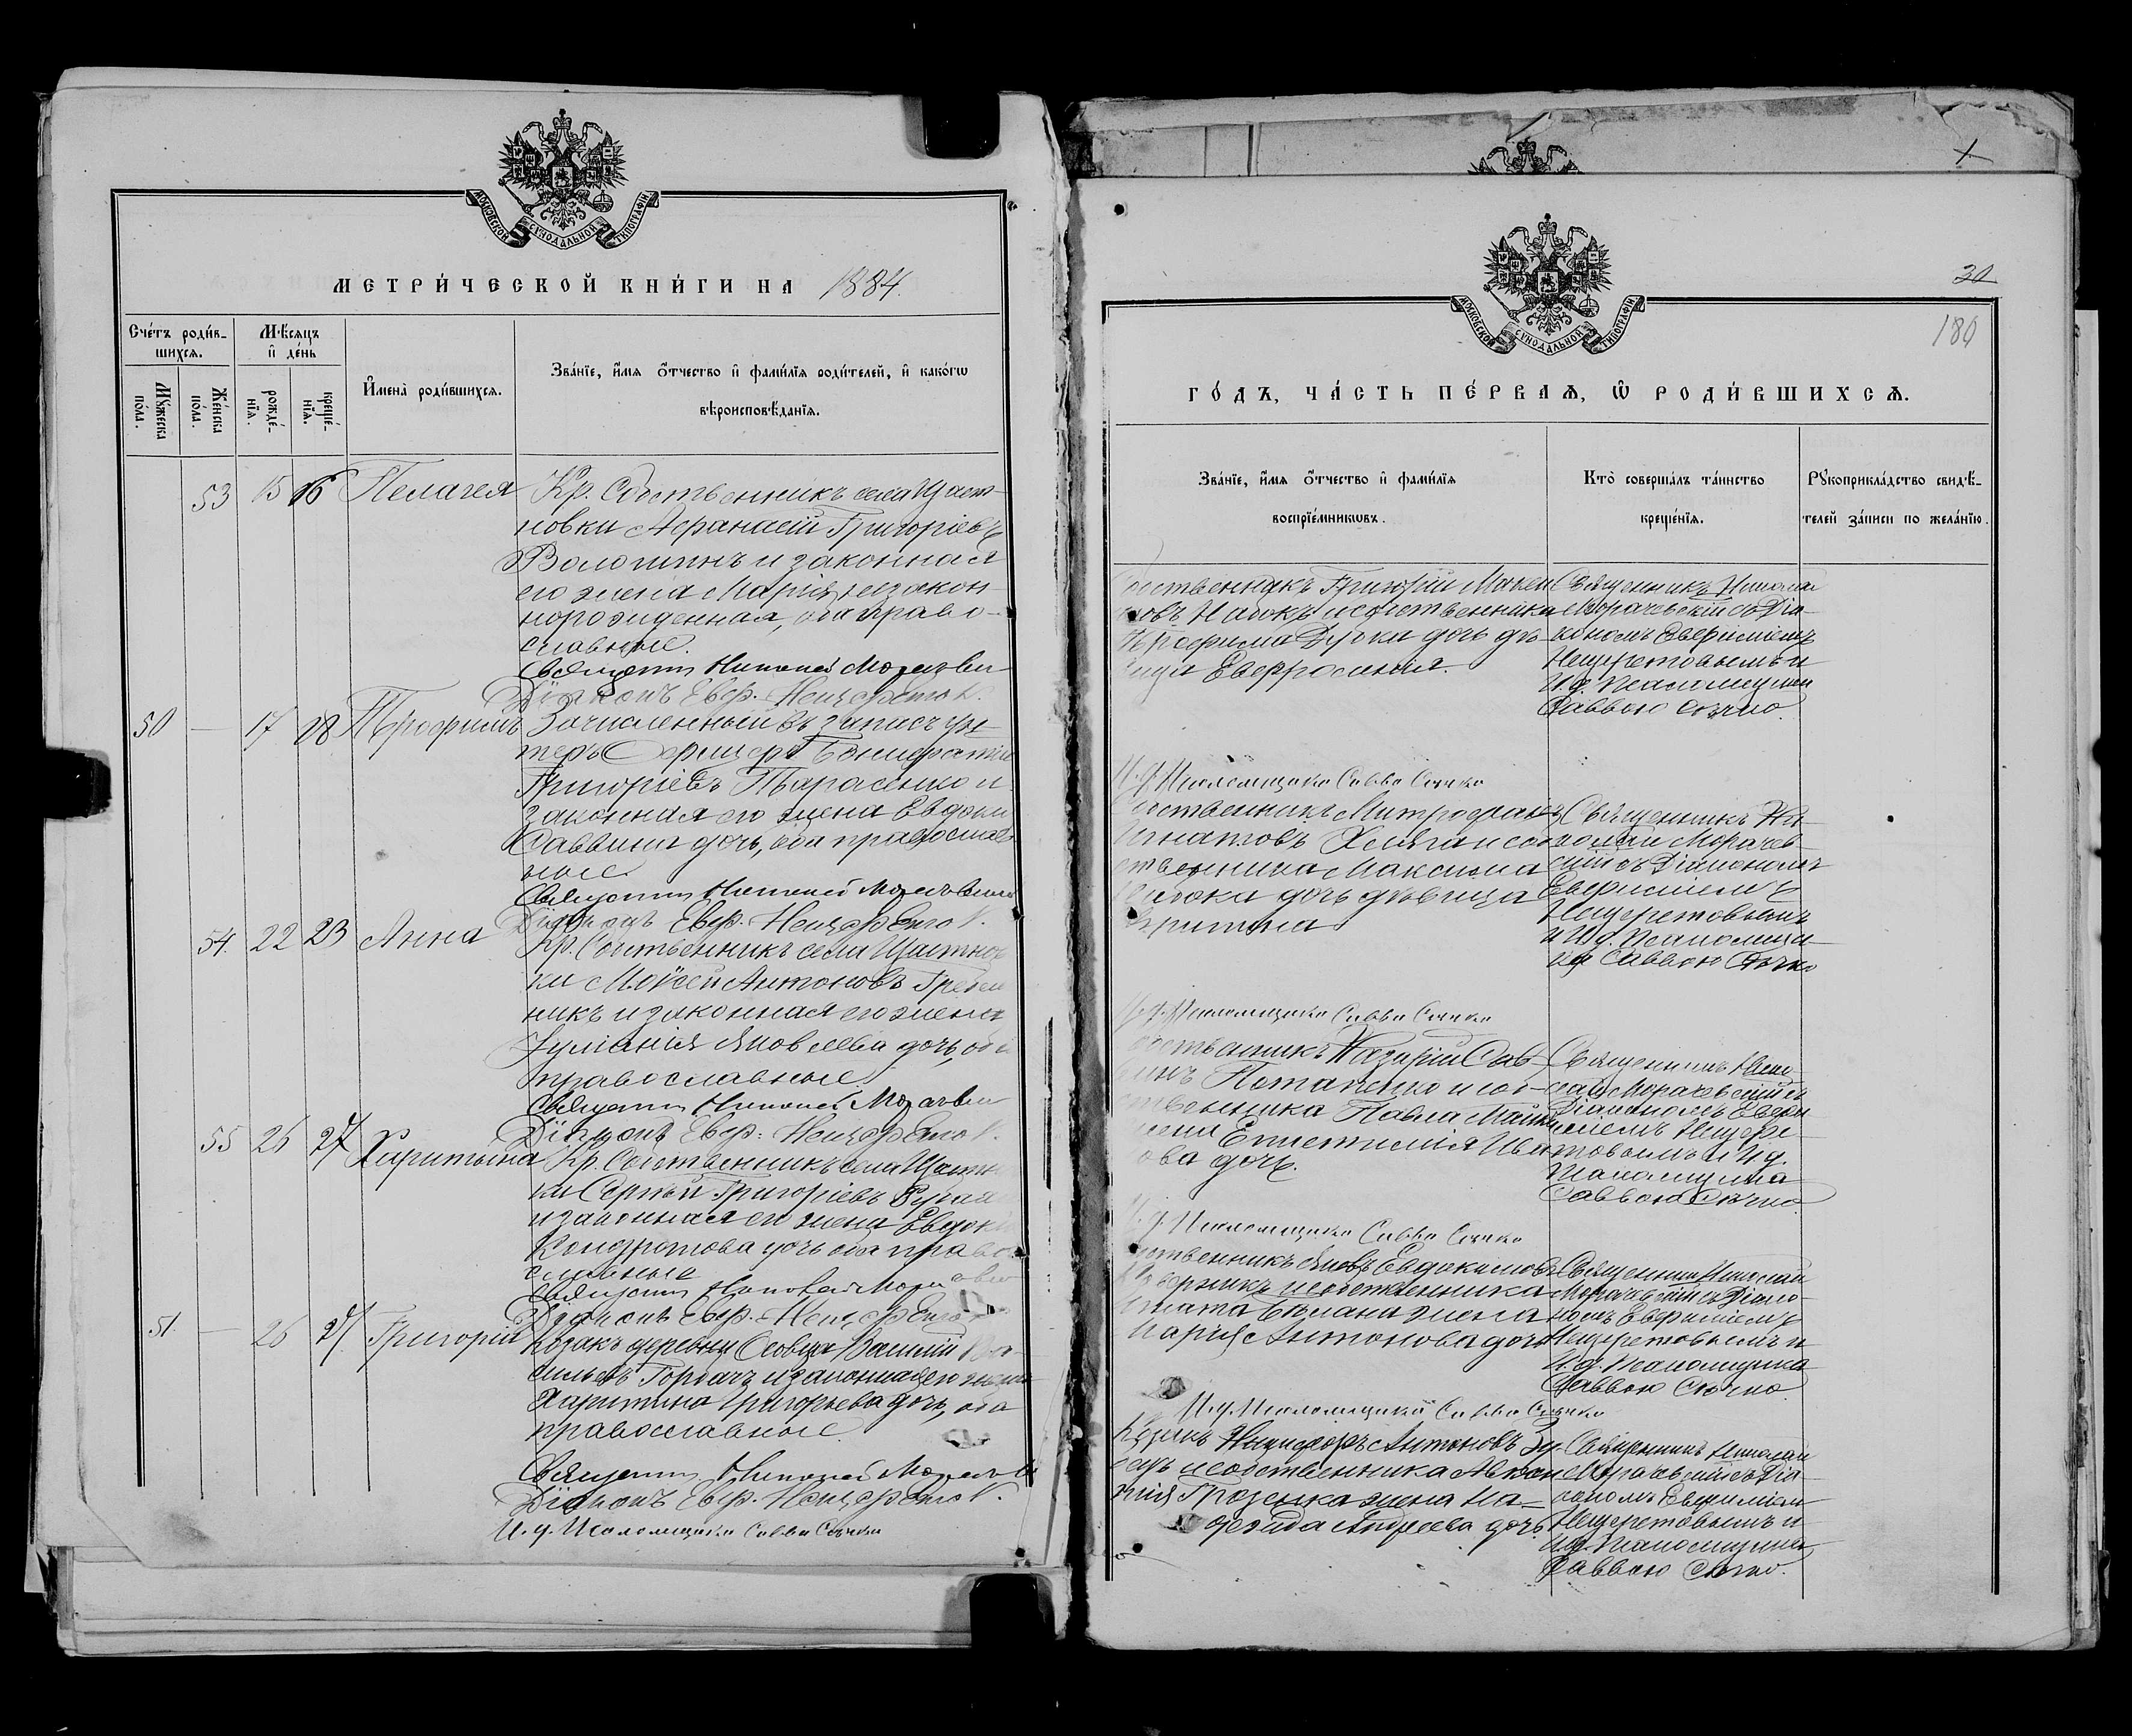 МОСКОВСКОЙ СѴНОДАЛЬНОЙ ТИПОГРАФІИ
МЕТРИ́ЧЕСКОЙ КНИ́ГИ НА 1884.
Сче́тъ роди́в-
шихсѧ.
Мѣ́сѧцъ
и҆ де́нь
Мꙋ́жеска
по́ла.
Же́нска
по́ла.
рожде́-
нїѧ.
креще́-
нїѧ.
И҆мена̀ роди́вшихсѧ.
Зва́нїе, и҆́мѧ ѻ҆́тчество и҆ фами́лїѧ роди́телей, и҆ како́гѡ
вѣроисповѣ́данїѧ.
53 15 16 Пелагея Кр. Собственникъ села Щаст-
новки Афанасій Григоріевъ
Волошинъ и законная
его жена Марія незакон-
норожденная, оба право-
славные.
Священник Николай Морачевск
Діаконъ Евф. Нещеретов.
50 — 17 18 Трофимъ Зачисленный въ запасъ ун-
теръ Офицеръ Бонифатій
Григоріевъ Тарасенко и
законная его жена Евдокі
Саввина дочь, оба православ
ные
Священник Николай Морачевский
Діаконъ Евф. Нещеретов.
54. 22 23 Анна Кр. Собственникъ села Щастнов
ки Моисей Антоновъ Гребен
никъ и законная его жена
Іуліанія Яковлева дочь, оба
православные.
Священник Николай Морачевск
Діаконъ Евф. Нещеретов.
55 26 27 Харитына Кр. Собственникъ села Щастн
ки Сергѣй Григоріевъ
и законная его жена Евдокі
Кондратова дочь оба право
славные
Священник Николай Морачевск
Діаконъ Евф. Нещеретов
51. — 26 27. Григорій Козакъ деревни Осовца Василій Ва-
сильевъ Горбачъ и законная его жена
Харитина Григорьева дочь, оба
православные.
Священник Николай Морачевск
Діаконъ Евф. Нещеретов.
И. д. Псаломщика Савва Сѣчко
30
180
МОСКОВСКОЙ СѴНОДАЛЬНОЙ ТИПОГРАФІИ
ГО́ДЪ, ЧА́СТЬ ПЕ́РВАѦ, Ѡ҆ РОДИ́ВШИХСѦ.
Зва́нїе, и҆́мѧ ѻ҆́тчество и҆ фами́лїѧ
воспрїе́мникѡвъ.
Кто̀ соверша́лъ та́инство
креще́нїѧ.
Рꙋкоприкла́дство свидѣ́-
телей за́писи по жела́нїю.
обственникъ Григорій
и собственника
Трофима дочь дѣ-
вица Евфросинія.
Священникъ Никола
Морачевскій съ Діа-
кономъ Евфиміемъ
Нещеретовымъ и
И. д. Псаломщика
Саввою Сѣчко.
И. д. Псаломщика Савва Сѣчко
обственникъ Митрофанъ
Игнатовъ и соб
ственника Максима
дочь дѣвица
Священникъ Ни-
колай Морачев-
скій съ Діакономъ
Евфиміемъ
Нещеретовымъ
и И. д. Псаломщи-
ка Саввою Сѣчко
И. д. Псаломщика Савва Сѣчко
обственникъ Назарій Сав-
винъ Потапенко и соб-
ственника Павла
жена Епистимія Ива
нова дочь.
Священникъ Нико-
лай Морачевскій съ
Діакономъ Евфи
міемъ Нещере-
товымъ и И. д.
Псаломщика
Саввою Сѣчко.
И. д. Псаломщика Савва Сѣчко
обственникъ Яковъ Евдокимовъ
и собственника
Игната жена
Марія Антонова дочь
Священникъ Николай
Морачевскій съ Діако-
номъ Евфиміемъ
Нещеретовымъ и
И. д. Псаломщика
Саввою Сѣчко
И. д. Псаломщика Савва Сѣчко
Козакъ Никифоръ Антоновъ
и собственника
жена На-
Андреева дочь
Священникъ Николай
Морачевскій съ Діа-
кономъ Евфиміем
Нещеретовымъ и
И. д. Псаломщика
Саввою Сѣчко.